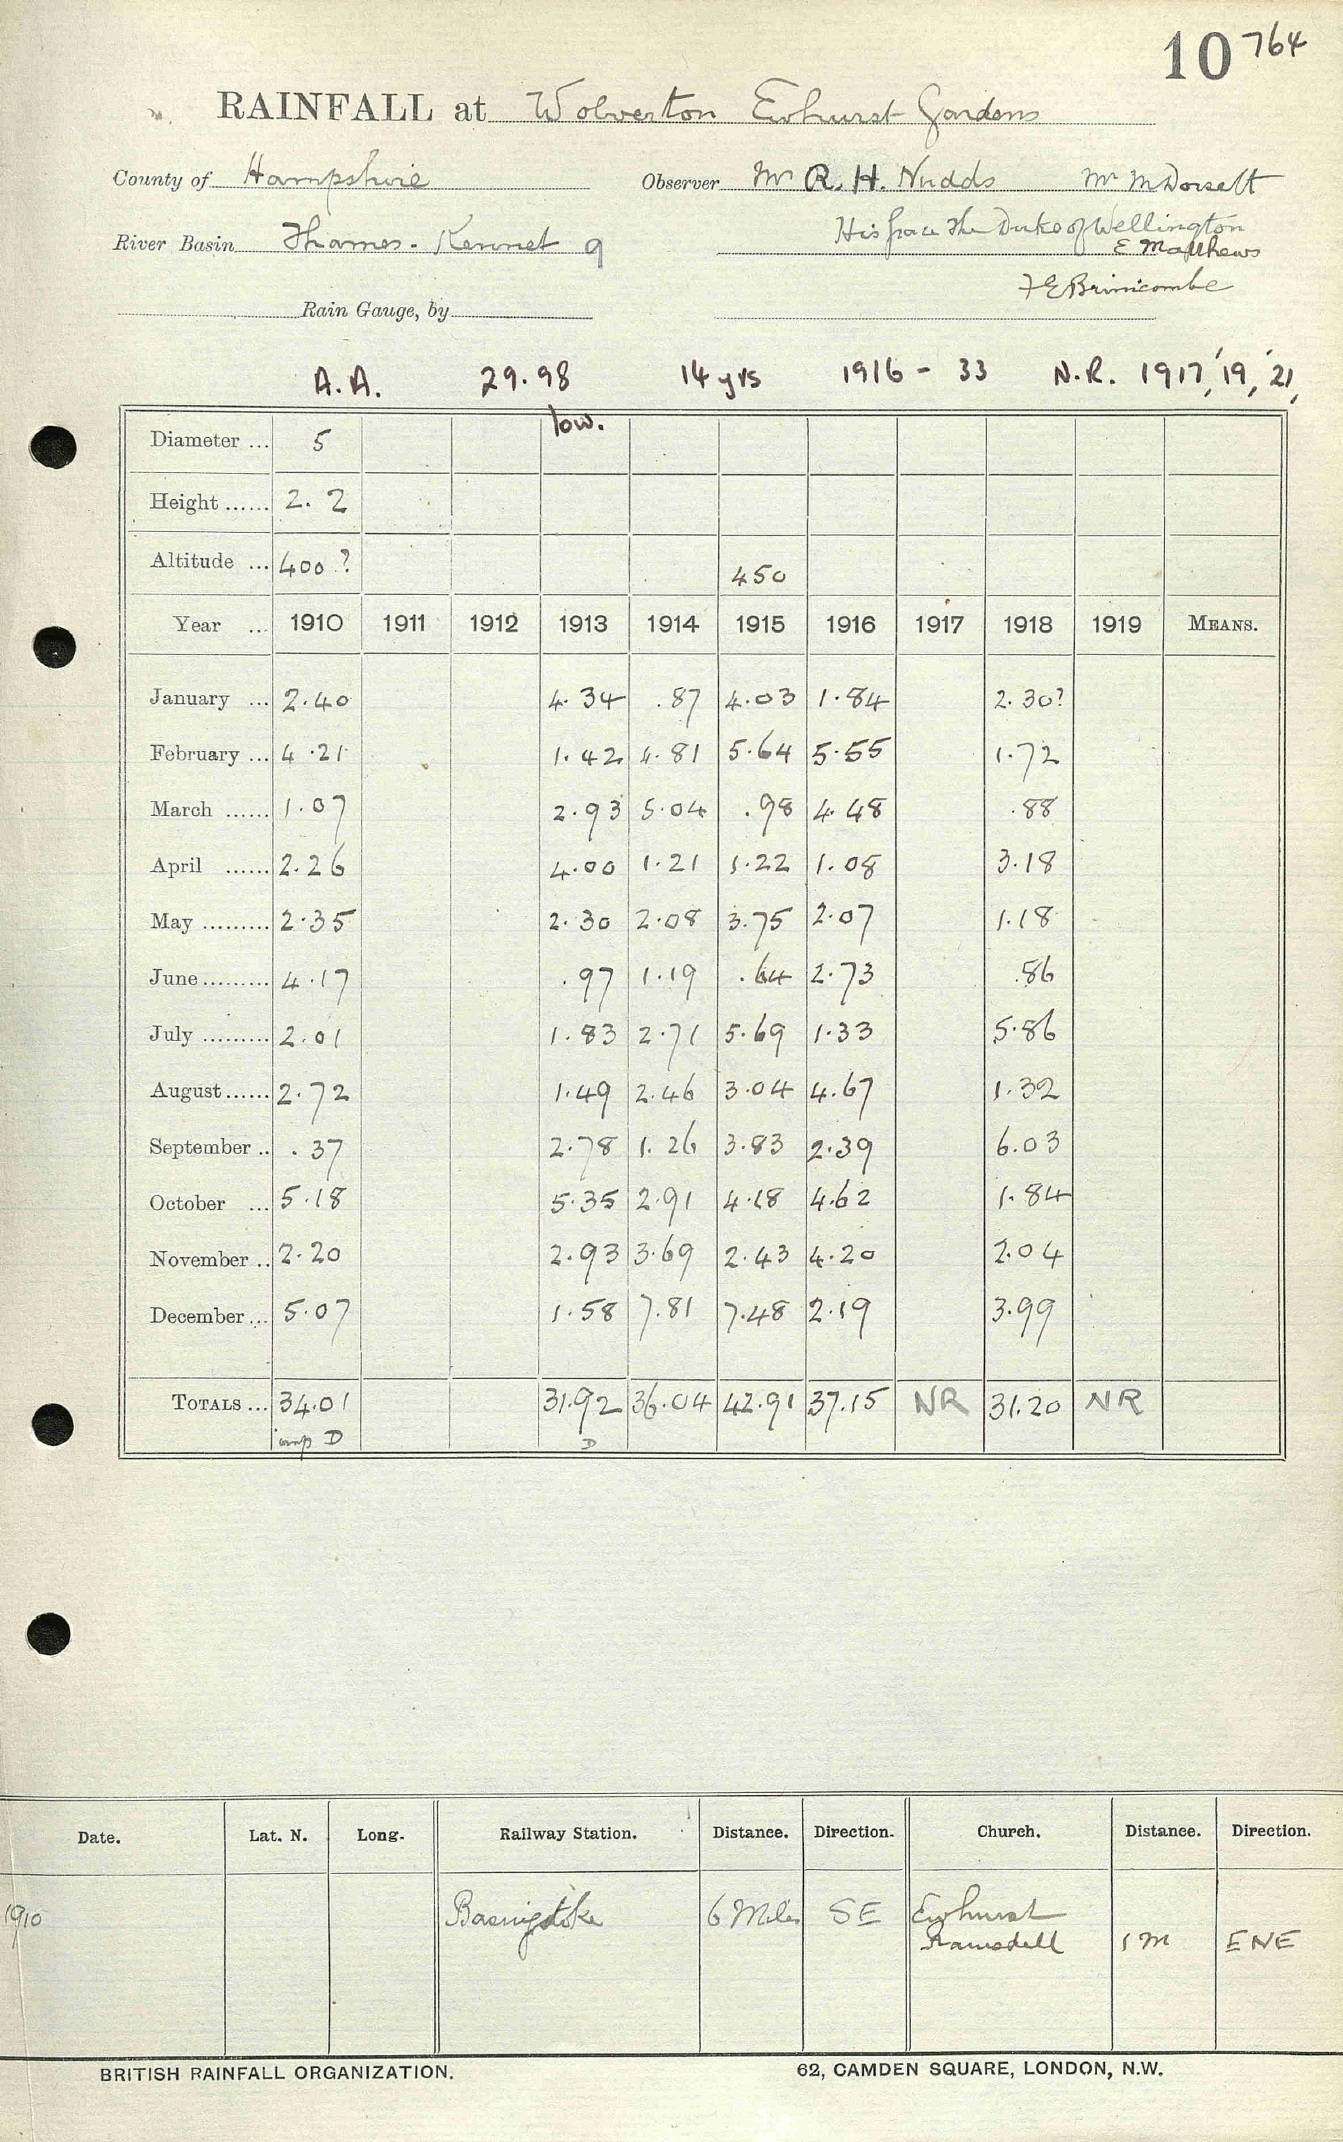 10 764
RAINFALL at Wolverton Ewhurst Gardens
County of Hampshire Observer Mr R. H. Nudds Mr M Dorsett
River Basin Thames. Kennet 9 His Grace The Duke of Wellington
E Matthews
F E Brimicombe
Rain Gauge, by
A.A. 29.98 14 yrs 1916 - 33 N.R. 1917, '19, '21,
low.
Diameter ... 5
Height ...... 2. 2
Altitude ... 400 ? 450
Year ... 1910 1911 1912 1913 1914 1915 1916 1917 1918 1919 MEANS.
January ... 2.40 4.34 .87 4.03 1.84 2.30?
February ... 4.21 1.42 4.81 5.64 5.55 1.72
March ...... 1.07 2.93 5.04 .98 4.48 .88
April ...... 2.26 4.00 1.21 1.22 1.08 3.18
May ......... 2.35 2.30 2.08 3.75 2.07 1.18
June ......... 4.17 .97 1.19 .64 2.73 .86
July ......... 2.01 1.83 2.71 5.69 1.33 5.86
August ...... 2.72 1.49 2.46 3.04 4.67 1.32
September .. .37 2.78 1.26 3.83 2.39 6.03
October ... 5.18 5.35 2.91 4.18 4.62 1.84
November .. 2.20 2.93 3.69 2.43 4.20 2.04
December ... 5.07 1.58 7.81 7.48 2.19 3.99
TOTALS ... 34.01 31.92 36.04 42.91 37.15 NR 31.20 NR
D D
Date. Lat. N. Long. Railway Station. Distance. Direction. Church. Distance. Direction.
1910 Basingstoke 6 Miles SE Ewhurst
Ramsdell 1 M ENE
BRITISH RAINFALL ORGANIZATION. 62, CAMDEN SQUARE, LONDON, N.W.